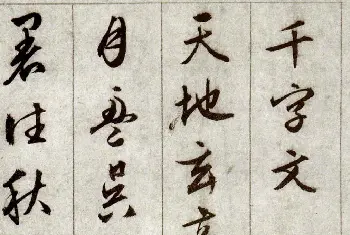 千字文
天地玄
月盈昃
暑往秋